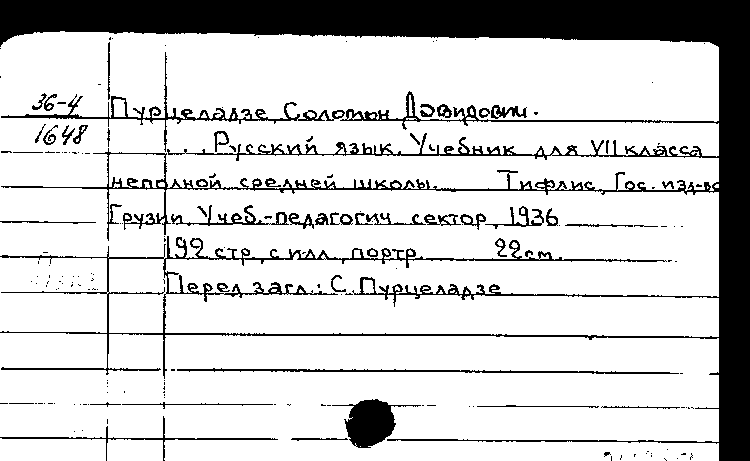 36-4
1648
Пурцеладзе, Соломон Давидович.
... Русский язык. Учебник для VII класса
неполной средней школы. Тифлис, Гос. изд-во
Грузии, Учеб.-педагогич. сектор, 1936
192 стр. с илл., портр. 22 см.
Перед загл.: С. Пурцеладзе